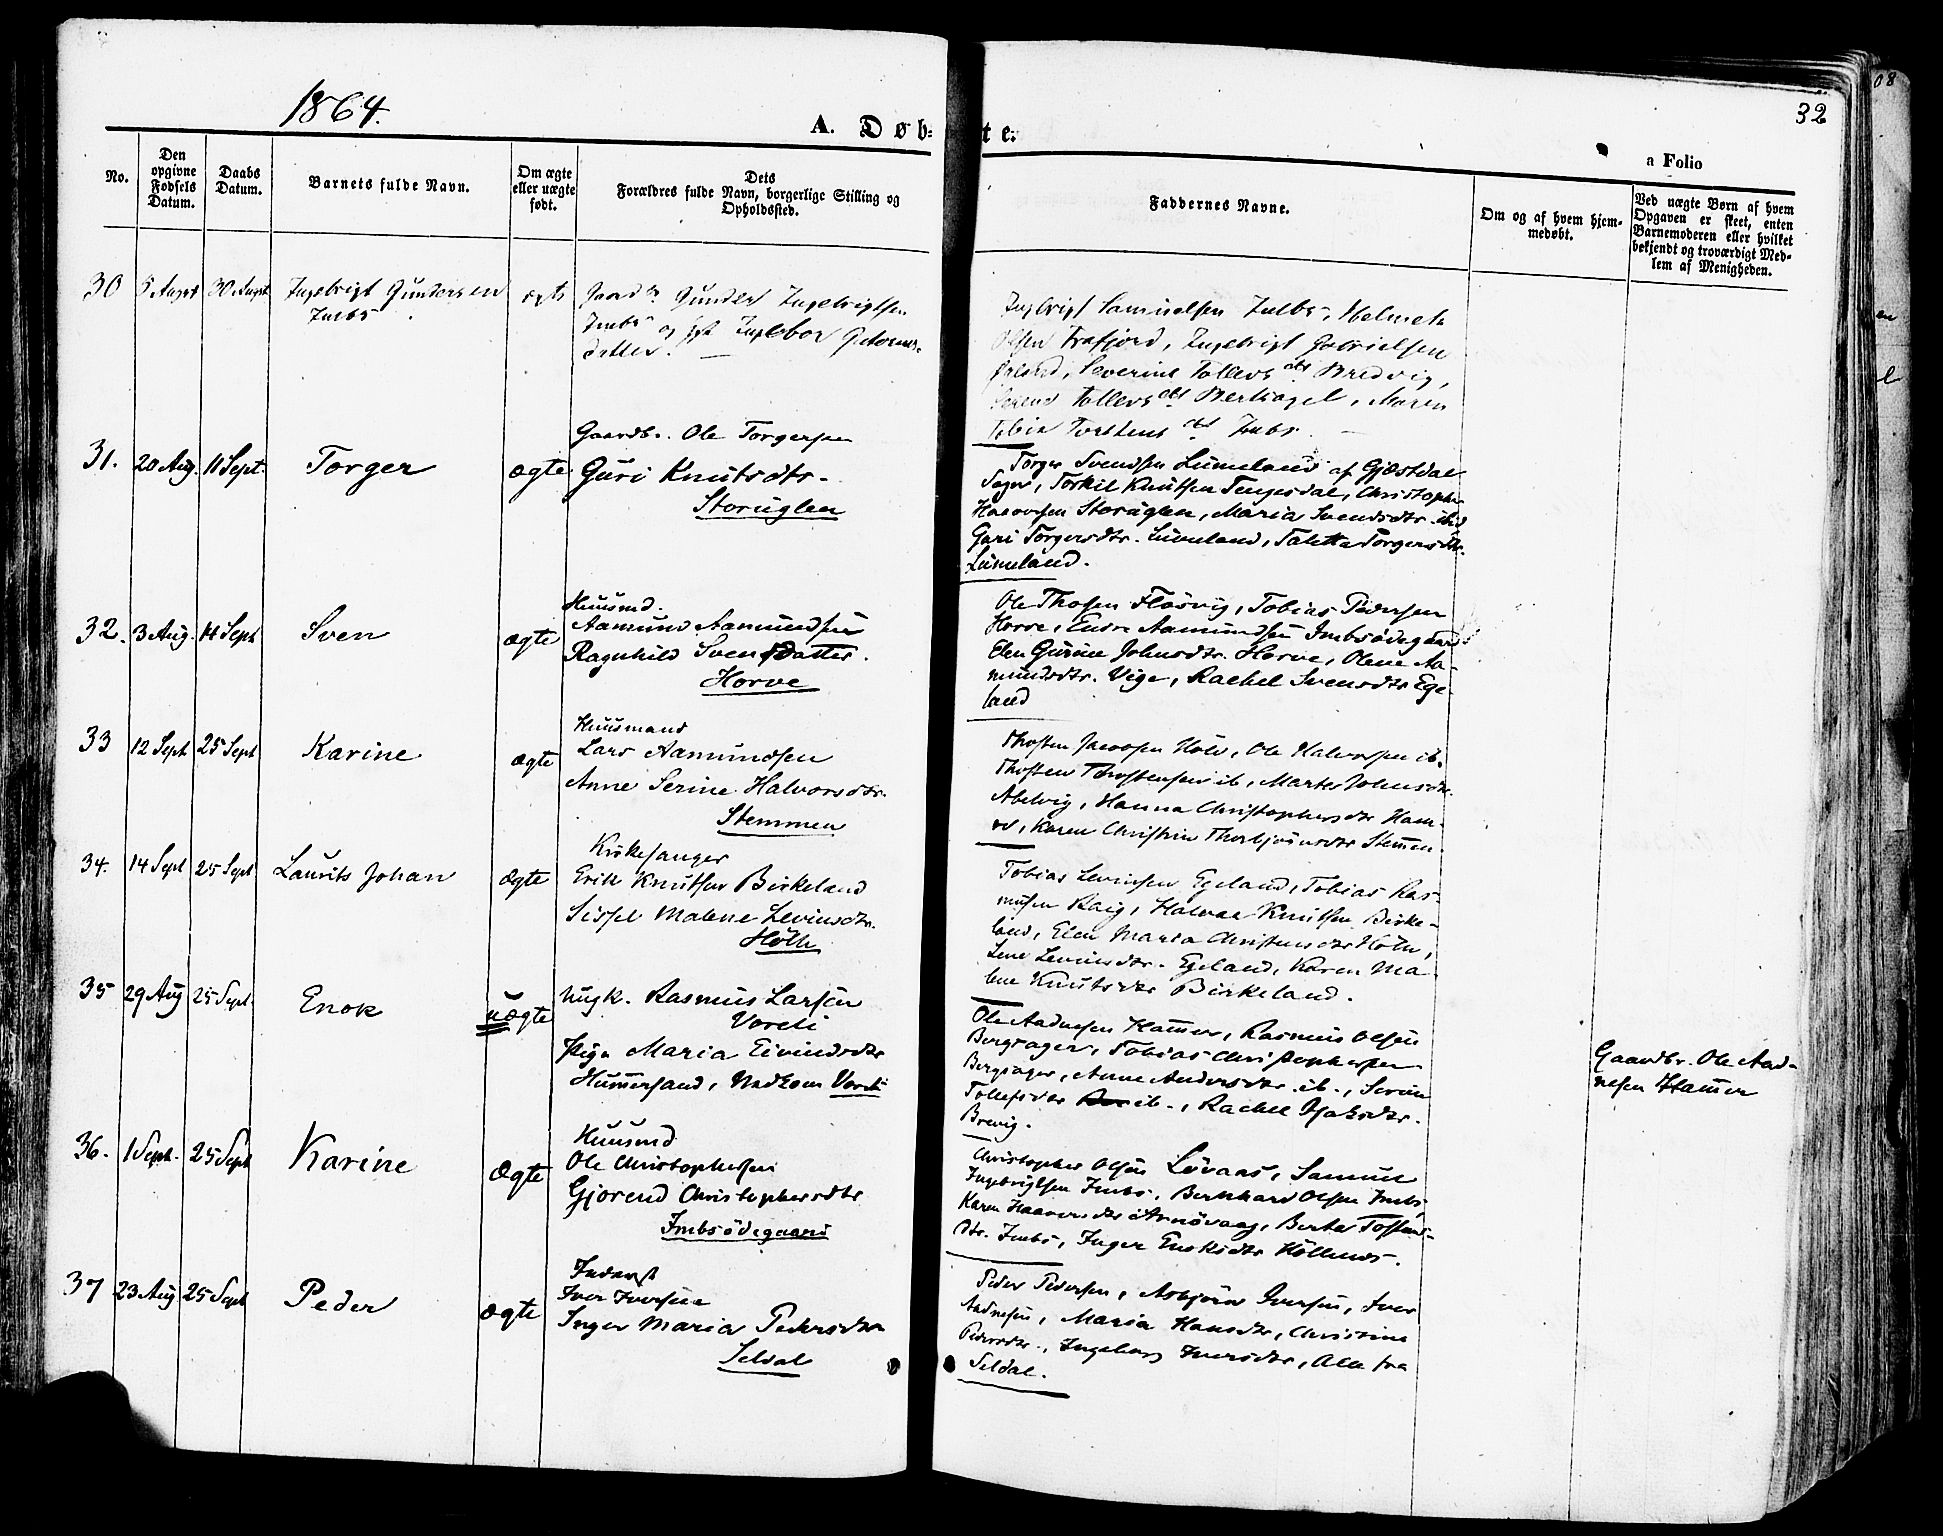 1864.
32
A. Døb-
te.
a Folio
No.
Den opgivne Fødsels Datum.
Daabs Datum.
Barnets fulde Navn.
Om ægte eller uægte født.
Dets Forældres fulde Navn, borgerlige Stilling og Opholdssted.
Faddernes Navne.
Om og af hvem hjem-medøbt.
Ved uægte Børn af hvem Opgaven er skeet, enten Barnemoderen eller hvilket bekjendt og troværdigt Med-lem af Menigheden.
30
Ingebrigt Gundersen
Imbs
Gunder Ingebrigtsen
Imbs og
datter.
Samuelsen Imbs,
Olsen Frafjord, Ingebrigt Gabrielsen
Severine Tollevsdtr Bredvig,
Tollevsdtr Bersagel, Maren
Torstensdtr Imbs
31.
20 Aug.
11 Sept.
Torger
ægte
Gaardb. Ole Torgersen
Guri Knutsdtr.
Storuglen
Torger Svendsen Lumeland af Gjæsdal
Sogn, Torkil Knutsen Tengesdal, Christopher
Storuglen, Maria Svendsdtr. ibid
Guri Torgersdtr. Lumeland, Taletta Torgersdtr.
Lumeland.
32.
3 Aug.
14 Sept
Sven
ægte
Huusmd.
Aamund Aamundsen
Ragnhild Svensdatter.
Horve
Ole Thosen Fløsvig, Tobias Pedersen
Horve, Endre Aamundsen Imbsødegaard
Elen Gurine Johnsdtr. Horve, Olene Aa-
mundsdtr. Vige, Rachel Svensdtr Ege-
land
33
12 Sept
25 Sept
Karine
ægte
Huusmand
Lars Aamundsen
Anne Serine Halvorsdtr.
Stemmen
Thosten Jacobsen Høle, Ole Halvorsen ib.
Thosten Thostensen ib, Marte Johnsdtr.
Adelvig, Hanna Christophersdtr Ham-
re, Karen Christine Thorbjørnsdtr Stemen.
34.
14 Sept
25 Sept
Laurits Johan
Ægte
Kirkesanger
Erik Knutsen Birkeland
Sissel Malene Levinsdtr.
Høle
Tobias Levinsen Egeland, Tobias Ras-
musen Raig, Halvor Knutsen Birke-
land, Elen Maria Christensdtr Høle,
Lene Levinsdtr. Egeland, Karen Ma-
lene Knutsdtr Birkeland.
35
29 Aug
25 Sept.
Enok
uægte
Ungk. Rasmus Larsen
Voreli
Pige Maria Eivindsdtr
Hummersand, Nedkom Voreli
Ole Aadnesen Hamer, Rasmus Olsen
Bergsager, Tobias Christophersen
Bersager, Anne Andersdtr. ib., Serine
Tollefsdtr ib., Rachel Isaksdtr.
Brevig.
Gaardbr. Ole Aad-
nesen Hamer
36.
1 Sept.
25 Sept
Karine
Ægte
Huusmd
Ole Christophersen
Gjorend Christophersdtr
Imbsödegaard
Christopher Olsen Løvaas, Samuel
Ingebrigtsen Imbs, Bernhard Olsen Imbs,
Karen Arnövaag, Berta Tostens-
dtr. Imbs, Inger Enoksdtr Höllund.
37
23 Aug
25 Sept
Peder
Ægte
Inderst
Iver Iversen
Inger Maria Pedersdtr
Seldal
Peder Pedersen, Asbjørn Iversen, Iver
Aadnesen, Maria Hansdtr, Christine
Pedersdtr., Ingeborg Iversdtr, Alle fra
Seldal.